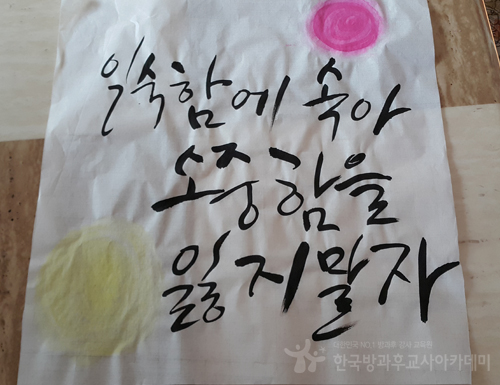 익숙함에 속아
소중함을
잃지말자
대한민국 NO.1 방과후 강사 교육원
한국방과후교사아카데미